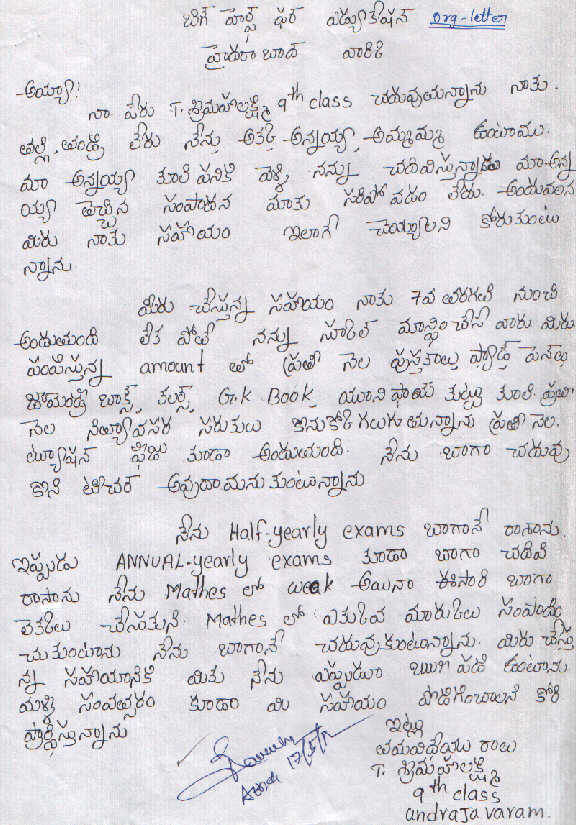 బిగ్ హెల్ప్ ఫర్ ఎడ్యుకేషన్ org-letter
హైదరాబాద్ వారికి
అయ్యా!
నా పేరు T. శ్రీమహలక్ష్మి 9th class చదువుతున్నాను నాకు
తల్లి, తండ్రి లేరు నేను అక్క అన్నయ్య అమ్మమ్మ ఉంటాము.
మా అన్నయ్య కూలి పనికి వెళ్ళి నన్ను చదివిస్తున్నాడు మా అన్న
య్య తెచ్చిన సంపాదన మాకు సరిపోవడం లేదు. అందువలన
మీరు నాకు సహయం ఇలాగే చెయ్యాలని కోరుకుంటు
న్నాను
మీరు చేస్తున్న సహాయం నాకు 7వ తరగతి నుంచి
అందుతుంది లేక పోతే నన్ను స్కూల్ మాన్పించేసే వారు మీరు
పంపిస్తున్న amount తో ప్రతి నెల పుస్తకాలు ప్యాడ్ పెన్
జామెంట్రీ బాక్స్ కలర్స్ G.K Book యూనిఫాం కుట్టు కూలి. ప్రతి
నెల నిత్యావసర సరుకులు కొనుకోగలుగుతున్నాను ప్రతి నెల.
ట్యూషన్ ఫీజు కూడా అందుతుంది. నేను బాగా చదువు
కొని టీచర్ అవుదామనుకుంటున్నాను
నేను Half-yearly exams బాగానే రాశాను.
ఇప్పుడు ANNUAL-yearly exams కూడా బాగా చదివి
రాసాను నేను Mathes లో weak అయినా ఈసారి బాగా
లెక్కలు చేసుకుని. Mathes లో ఎక్కువ మారుకులు సంపాది
చుకుంటాను నేను బాగానే చదువుకుంటున్నాను. మీరు చేస్తు
న్న సహాయానికి మీకు నేను ఎప్పుడూ ఋణపడి ఉంటాను
మళ్లి సంవత్సరం కూడా మీ సహాయం పొడిగించాలని కోరి
ప్రార్థిస్తున్నాను
ఇట్లు
తమవిదేయు రాలు
T. శ్రీమహలక్ష్మి
9th class
andrajavaram.